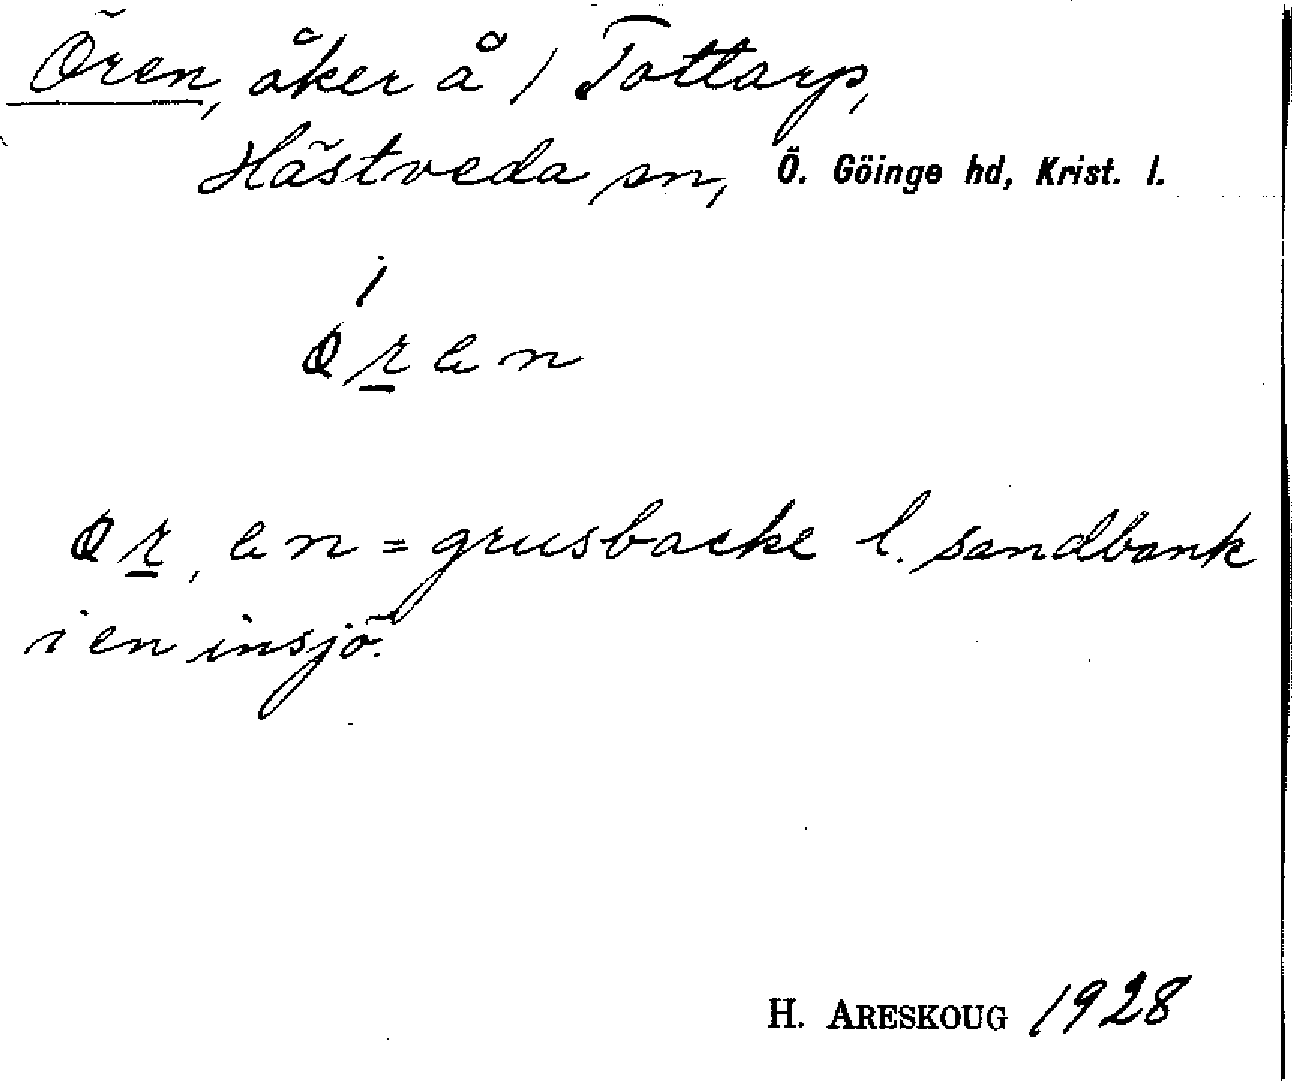 Ören, åker å 1 Tottarp,
Hästveda sn, Ö. Göinge hd, Krist. l.
ø r e n
ø r, e n = grusbacke l. sandbank
i en insjö.
H. ARESKOUG 1928